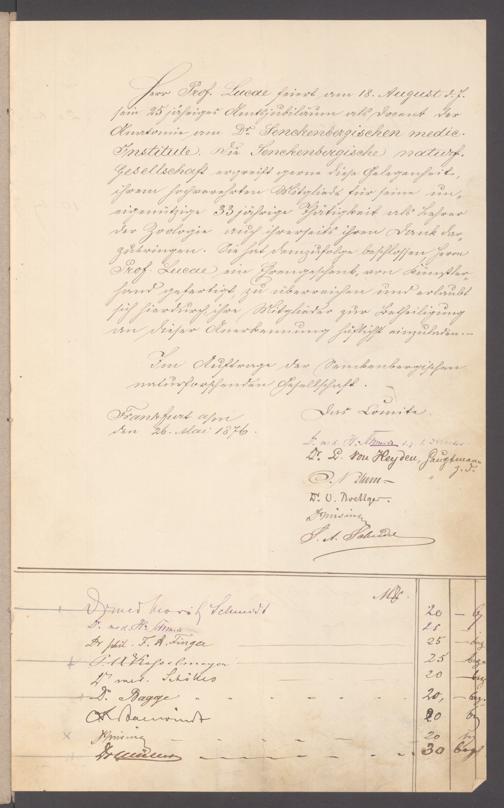 Herr Prof. Lucae feiert am 18. August d. J.
sein 25 jähriges Amtsjubiläum als Docent der
Anatomie am Dr. Senckenbergischen medic.
Institute. Die Senckenbergische naturf.
Gesellschaft ergreift gerne diese Gelegenheit,
ihrem hochverehrten Mitglied für seine un-
eigennützige 33 jährige Thätigkeit als Lehrer
der Zoologie auch ihrerseits ihren Dank dar-
zubringen. Sie hat demzufolge beschlossen Herrn
Prof. Lucae ein Ehrengeschenk, von Künstler-
hand gefertigt zu überreichen und erlaubt
sich hierdurch, ihre Mitglieder zur Betheiligung
an dieser Anerkennung höflichst einzuladen.
Im Auftrage der Senckenbergischen
naturforschenden Gesellschaft.
Das Comité.
Frankfurt a/m
den 26. Mai 1876.
Dr. med. H.
Dr. L. von Heyden, Hauptmann
z. D.
Dr. O. Boettger.
Mk.
Dr med Moritz Schmidt 20
Dr. med. H. 25
Dr phil. F. A. Finger 25
25
Dr med. 20
Dr. Bagge 20,
20
20
30